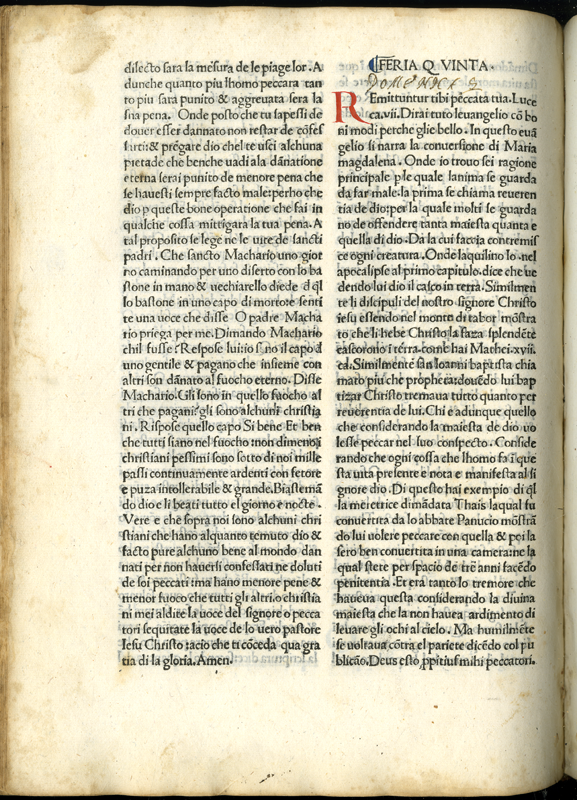 dilecto sara la mesura de le piage lor. A
dunche quanto piu lhomo peccara tan
to piu sara punito & aggreuata sera la
sua pena. Onde posto che tu sapessi de
douer esser dannato non restar de cõfes
sarti: & pregare dio chel te usi alchuna
pietade che benche uadi ala dãnatione
eterna serai punito de menore pena che
se hauesti sempre facto male: perho che
dio p queste bone operatione che fai in
qualche cossa mitigara la tua pena. A
tal proposito se lege ne le uite de sancti
padri. Che sancto Machario uno gior
no caminando per uno diserto con lo ba
stone in mano & uechiarello diede d q̃l
lo bastone in uno capo di morto & senti
te una uoce che disse O padre Macha
rio priega per me. Dimando Machario
chil fusse? Respose lui: io so no il capo d
uno gentile & pagano che insieme con
altri son dãnato al fuocho eterno. Disse
Machario. Gli sono in quello fuocho al
tri che pagani? gli sono alchuni christia
ni. Rispose quello capo Si bene Et ben
che tutti siano nel fuocho: non dimenoi
christiani pessimi sono sotto di noi mille
passi continuamente ardenti con fetore
e puza intollerabile & grande. Biastemã
do dio e li beati tutto el giorno e nocte.
Vere e che sopra noi sono alchuni chri
stiani che hano alquanto temuto dio &
facto pure alchuno bene al mondo dan
nati per non hauersi confessati ne doluti
de soi peccati: ma hano menore pene &
menor fuoco che tutti gli altri. o christia
ni mei aldite la uoce del signore o pecca
tori sequitate la uoce de lo uero pastore
Iesu Christo: acio che ti cõceda qua gra
tia di la gloria. Amen.
FERIA Q VINTA.
DOMENICA
REmittuntur tibi peccata tua. Luce
ca. vii. Dirai tuto leuangelio cõ bo
ni modi perche glie bello. In questo euã
gelio si narra la conuersione di Maria
magdalena. Onde io trouo sei ragione
principale ple quale lanima se guarda
da far male. la prima se chiama reueren
tia de dio: per la quale molti se guarda
no de offendere tanta maiesta quanta e
quella di dio. Da la cui faccia contremis
ce ogni creatura. Onde laquilino Io. nel
apocalipse al primo capitulo. dice che ue
dendo lui dio il casco in terra. Similmen
te li discipuli del nostro signore Christo
iesu essendo nel monte di tabor mostra
to che li hebe Christo la faza splendẽte
cascorono ĩ terra. come hai Mathei. xvii.
ca. Similmente san Ioanni baptista chia
mato piu che propheta: douẽdo lui bap
tizar Christo tremaua tutto quanto per
reuerentia de lui. Chi e adunque quello
che considerando la maiesta de dio uo
lesse peccar nel suo conspecto. Conside
rando che ogni cossa che lhomo fa i que
sta uita presente e nota e manifesta al si
gnore dio. Di questo hai exempio di q̃l
la meretrice dimãdata Thais laqual fu
conuertita da lo abbate Panucio mõstrã
do lui uolere peccare con quella & poi la
sero ben conuertita in una camera: ne la
qual stere per spacio de tre anni facẽdo
penitentia. Et era tanto lo tremore che
haueua questa considerando la diuina
maiesta che la non hauea ardimento di
leuare gli ochi al cielo. Ma humilmẽte
se uoltaua cõtra el pariete dicẽdo col pu
blicão. Deus esto ꝓpitius mihi peccatori.